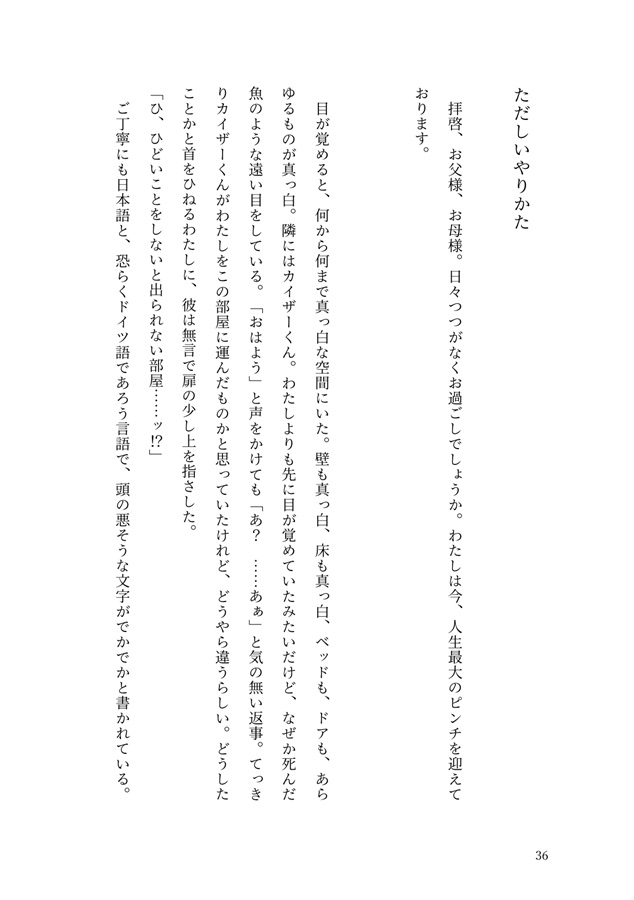 ただしいやりかた
拝啓、お父様、お母様。日々つつがなくお過ごしでしょうか。わたしは今、人生最大のピンチを迎えて
おります。
目が覚めると、何から何まで真っ白な空間にいた。壁も真っ白、床も真っ白、ベッドも、ドアも、あら
ゆるものが真っ白。隣にはカイザーくん。わたしよりも先に目が覚めていたみたいだけど、なぜか死んだ
魚のような遠い目をしている。「おはよう」と声をかけても「あ？　……あぁ」と気の無い返事。てっき
りカイザーくんがわたしをこの部屋に運んだものかと思っていたけれど、どうやら違うらしい。どうした
ことかと首をひねるわたしに、彼は無言で扉の少し上を指さした。
「ひ、ひどいことをしないと出られない部屋……ッ!?」
ご丁寧にも日本語と、恐らくドイツ語であろう言語で、頭の悪そうな文字がでかでかと書かれている。
36